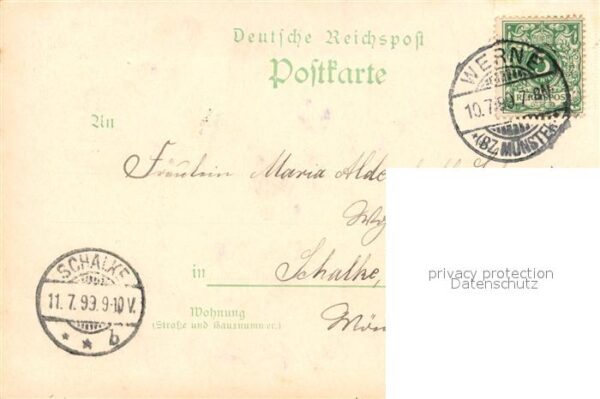 Deutsche Reichspost
Postkarte
WERNE
10.7.99 7-8N
*(BZ. MÜNSTER)
5
REICHSPOST
An
Fräulein Maria Alde
in Schalke,
Wohnung
(Straße und Hausnummer.)
SCHALKE
11.7.99.9-10V.
* * b
privacy protection
Datenschutz